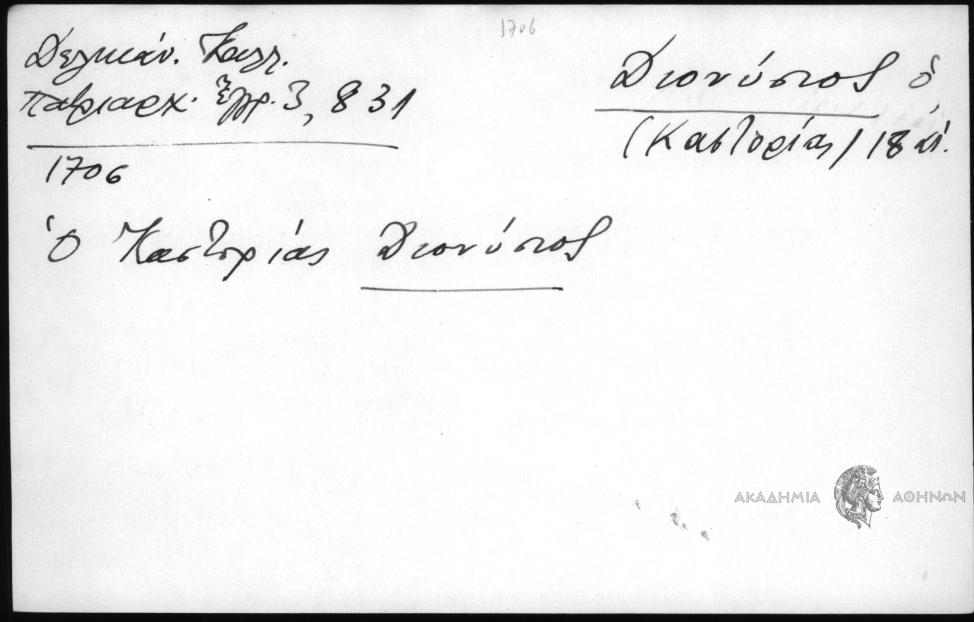 1706
Δελικάν. Καλλ.
Πατριαρχ. Ἔγγρ. 3, 831
1706
Διονύσιος ὁ
(Καστορίας) 18 αἰ.
ὁ Καστορίας Διονύσιος
ΑΚΑΔΗΜΙΑ ΑΘΗΝΩΝ